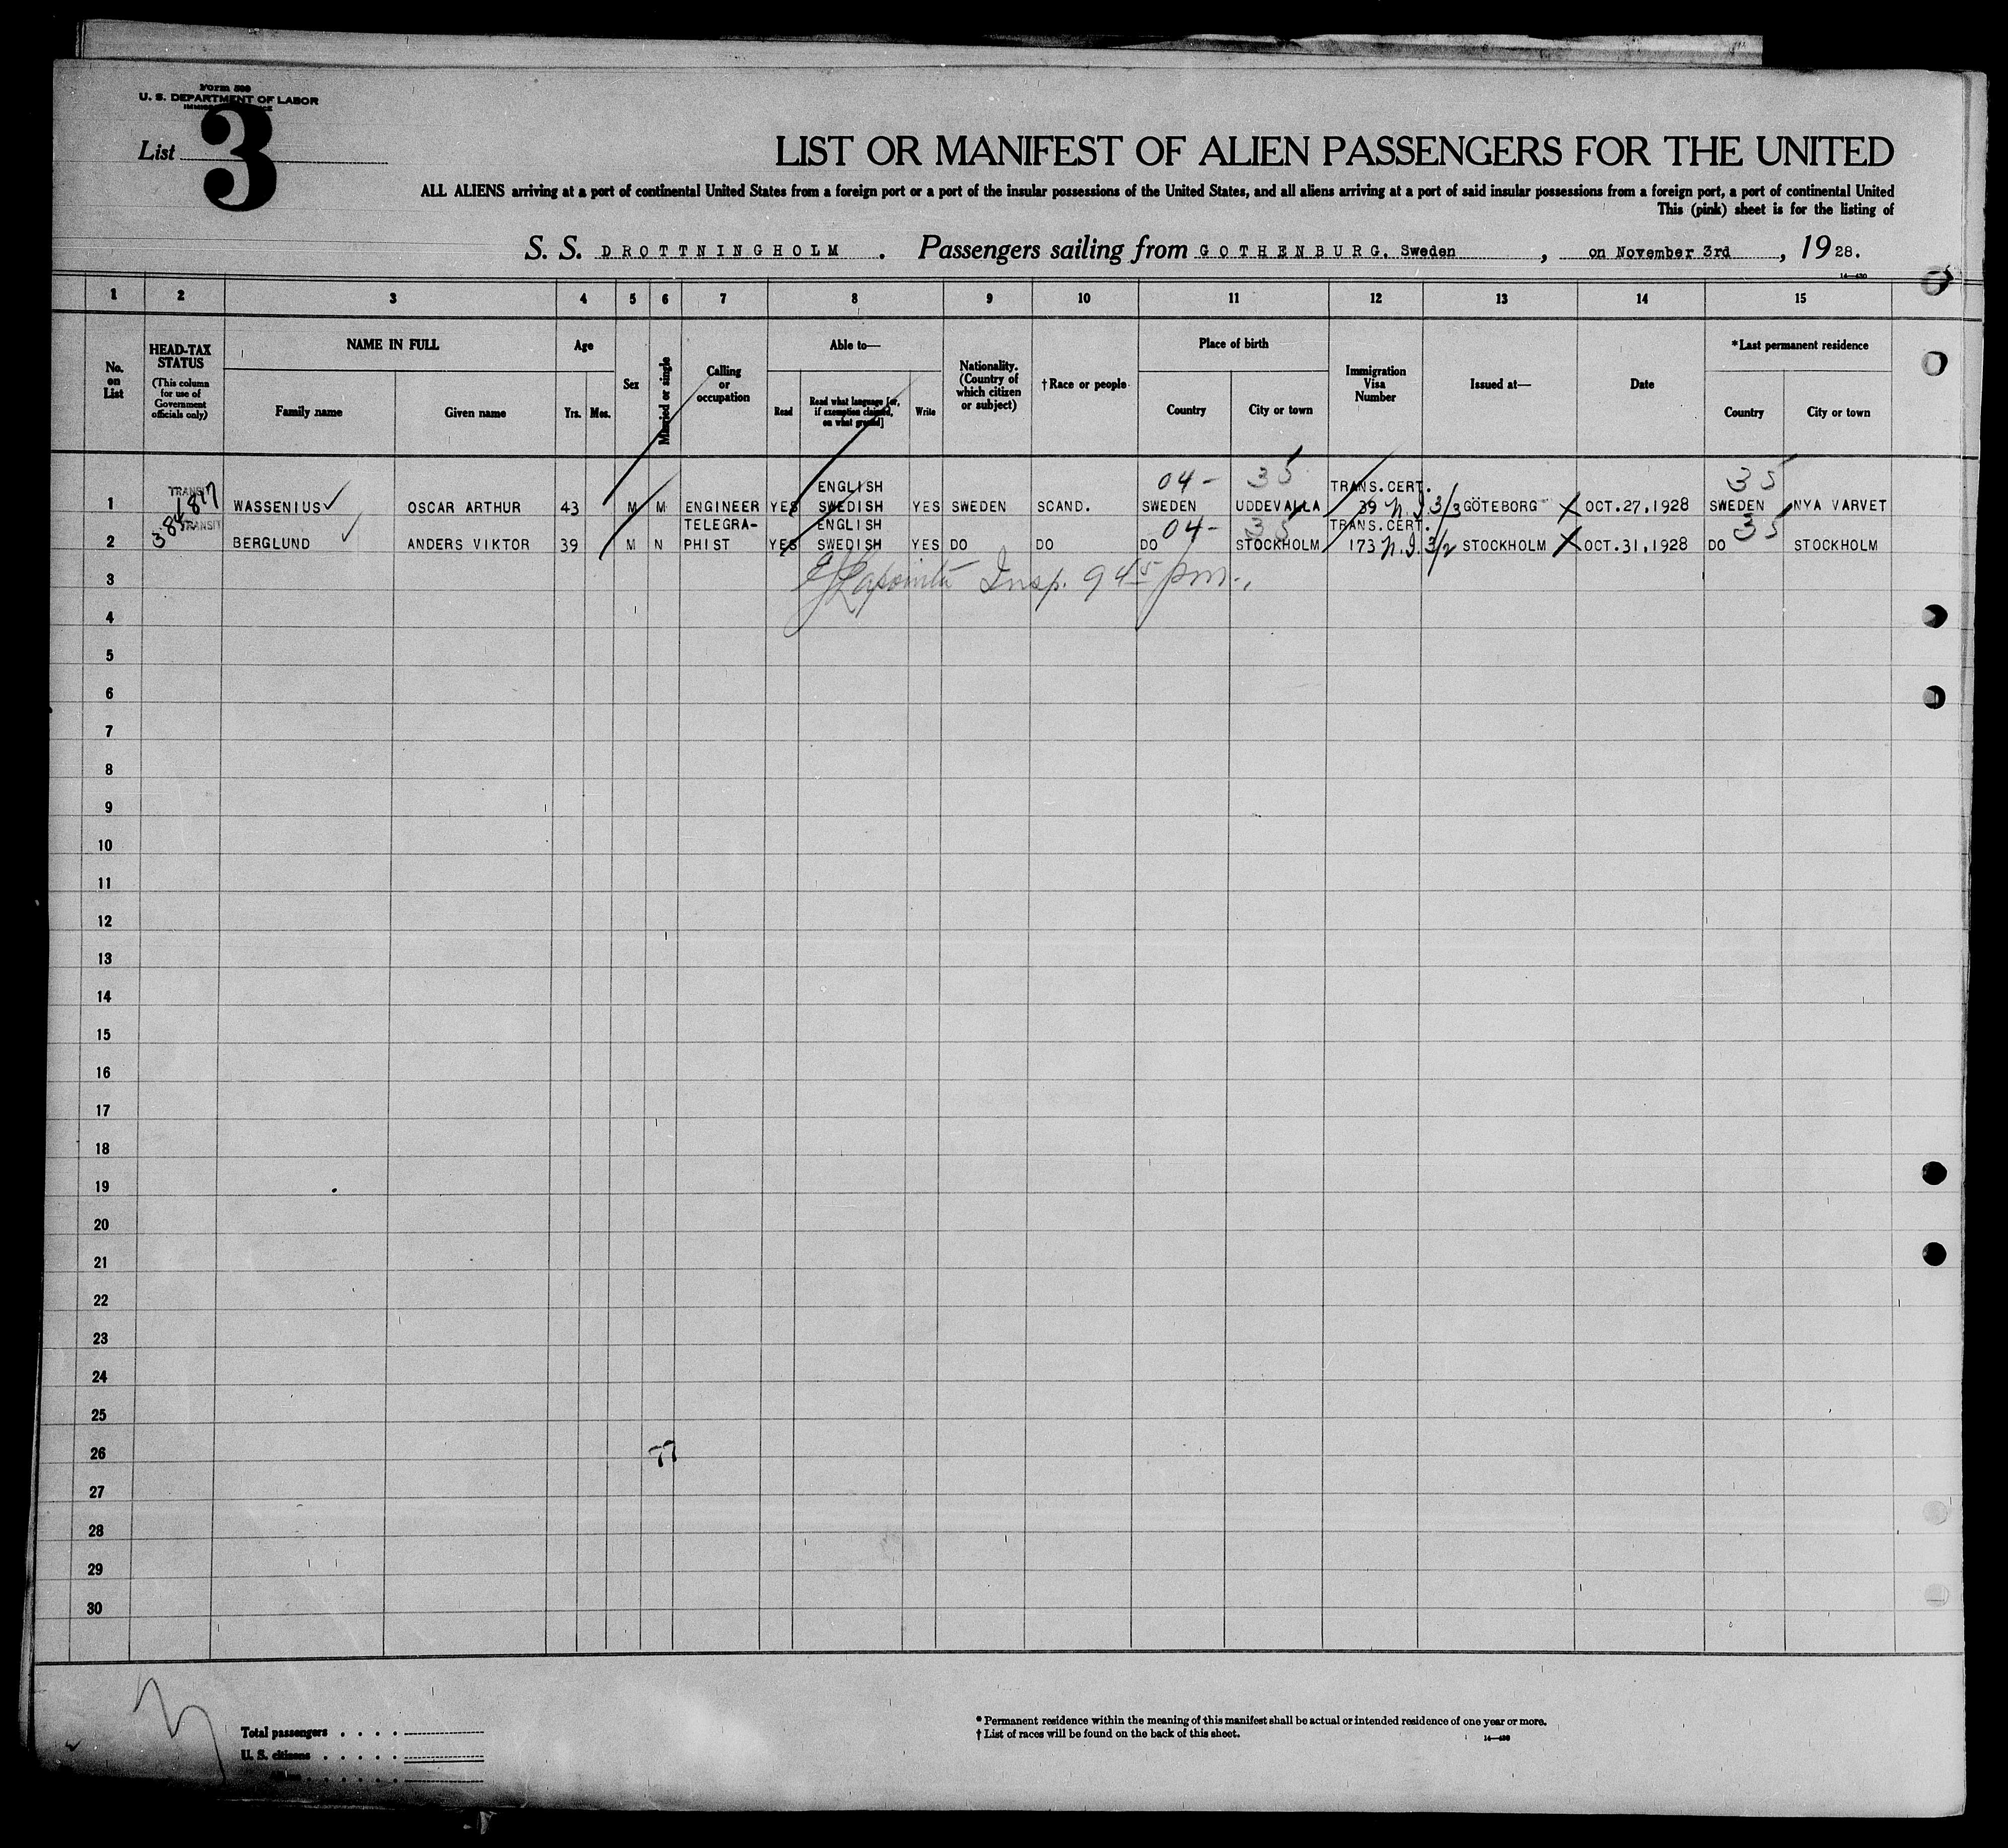 Form 500
U. S. DEPARTMENT OF LABOR
List 3
LIST OR MANIFEST OF ALIEN PASSENGERS FOR THE UNITED
ALL ALIENS arriving at a port of continental United States from a foreign port or a port of the insular possessions of the United States, and all aliens arriving at a port of said insular possessions from a foreign port, a port of continental United
This (pink) sheet is for the listing of
S. S. DROTTNINGHOLM . Passengers sailing from GOTHENBURG. Sweden , on November 3rd , 1928.
1 2 3 4 5 6 7 8 9 10 11 12 13 14 15
No. on List
HEAD-TAX STATUS (This column for use of Government officials only)
NAME IN FULL
Family name Given name
Age
Yrs. Mos.
Sex
Married or single
Calling or occupation
Able to—
Read Read what language [or, if exemption claimed, on what ground] Write
Nationality. (Country of which citizen or subject)
†Race or people
Place of birth
Country City or town
Immigration Visa Number
Issued at—
Date
*Last permanent residence
Country City or town
04- 35 35
TRANSIT ENGLISH TRANS.CERT.
1 WASSENIUS OSCAR ARTHUR 43 M M ENGINEER YES SWEDISH YES SWEDEN SCAND. SWEDEN UDDEVALLA 39 3/3 GÖTEBORG OCT.27,1928 SWEDEN NYA VARVET
TRANSIT TELEGRA- ENGLISH 04- 35 TRANS.CERT. 35
2 BERGLUND ANDERS VIKTOR 39 M N PHIST YES SWEDISH YES DO DO DO STOCKHOLM 173 3/2 STOCKHOLM OCT.31,1928 DO STOCKHOLM
3 Insp. 9 45 pm.
4
5
6
7
8
9
10
11
12
13
14
15
16
17
18
19
20
21
22
23
24
25
26
27
28
29
30
Total passengers . . . .
U. S. citizens . . . . .
* Permanent residence within the meaning of this manifest shall be actual or intended residence of one year or more.
† List of races will be found on the back of this sheet.